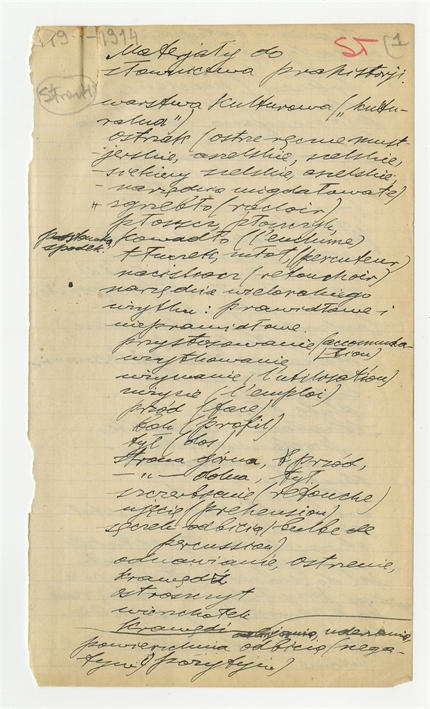 1914
ST (1
Materjały do
słownictwa prahistorji.
warstwa kulturowa („kultu-
ralna”)
ostrzak (ostrze ręczne must-
jerskie, aszelskie, szelskie,
siekiery szelskie, aszelskie,
narzędzia migdałowate)
„ zgrzebło (racloir)
płoszcz, płoszczyk,
kowadło (l'enclume)
tłuczek, młot, (percuteur)
naciskacz (retouchoir)
narzędzia wielorakiego
użytku: prawidłowe i
nieprawidłowe.
przystosowanie (accommoda-
tion)
użytkowanie,
używanie (l'utilisation)
użycie (l'emploi)
przód (face)
bok (profil)
tył (dos)
strona górna, przód,
—„— dolna, tył
szczerbienie (retouche)
ujęcie (préhension)
sęczek odbicia (bulbe de
percussion)
odnawianie, ostrzenie,
krawędź
ostroszczyt
wierzchołek
krawędź uderzenia,
powierzchnia odbicia (nega-
tyw i pozytyw)
podstawa,
spodek.